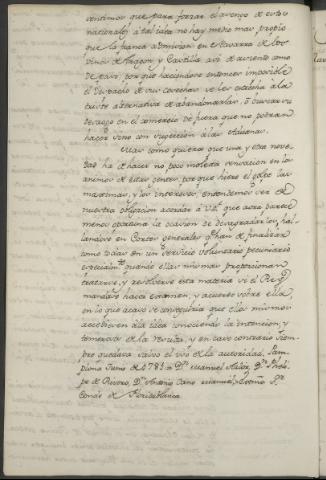 sentimos que para forzar el avengo de estos
naturales á tal idea no hay medio mas propio
que la franca admision en Navarra de los
vinos de Aragon y Castilla asi de asiento como
de paso, por que haciendose entonces imposible
el despacio de sus cosechas se les estrecha á la
triste alternativa de abandonarlas, ó buscar su
desaogo en el comercio de fuera que no podran
hacer sino con sugecion á las Aduanas.
Mas como quiera que una y otra nove-
dad ha de hacer no poco molesta sensacion en los
animos de estas gentes, por que hiere el golpe las
maximas, y los intereses, entendemos ser de
nuestra obligacion acordar á V.E. que aora parece
menos oportuna la ocasion de desagradarlas, ha-
llandose en Cortes generales q.e han de finalizar
como todas en un servicio voluntario pecuniario
especialm.te quando ellas mismas proporcionan
tratarse, y resolverse esta materia si el Rey
mandase hacer examen, y acuerdo sobre ella,
en lo qual acaso se conseguiria que ellas mismas
accediesen á la idea conociendo la intencion, y
temerosas de la resulta, y en caso contrario siem-
pre quedava salvo el uso de la autoridad. Pam-
plona Junio de 1781 = D.n Manuel Azlor, D.n Phelipe
pe de Rivero, D.n Antonio Cano Manuel,
Conde de